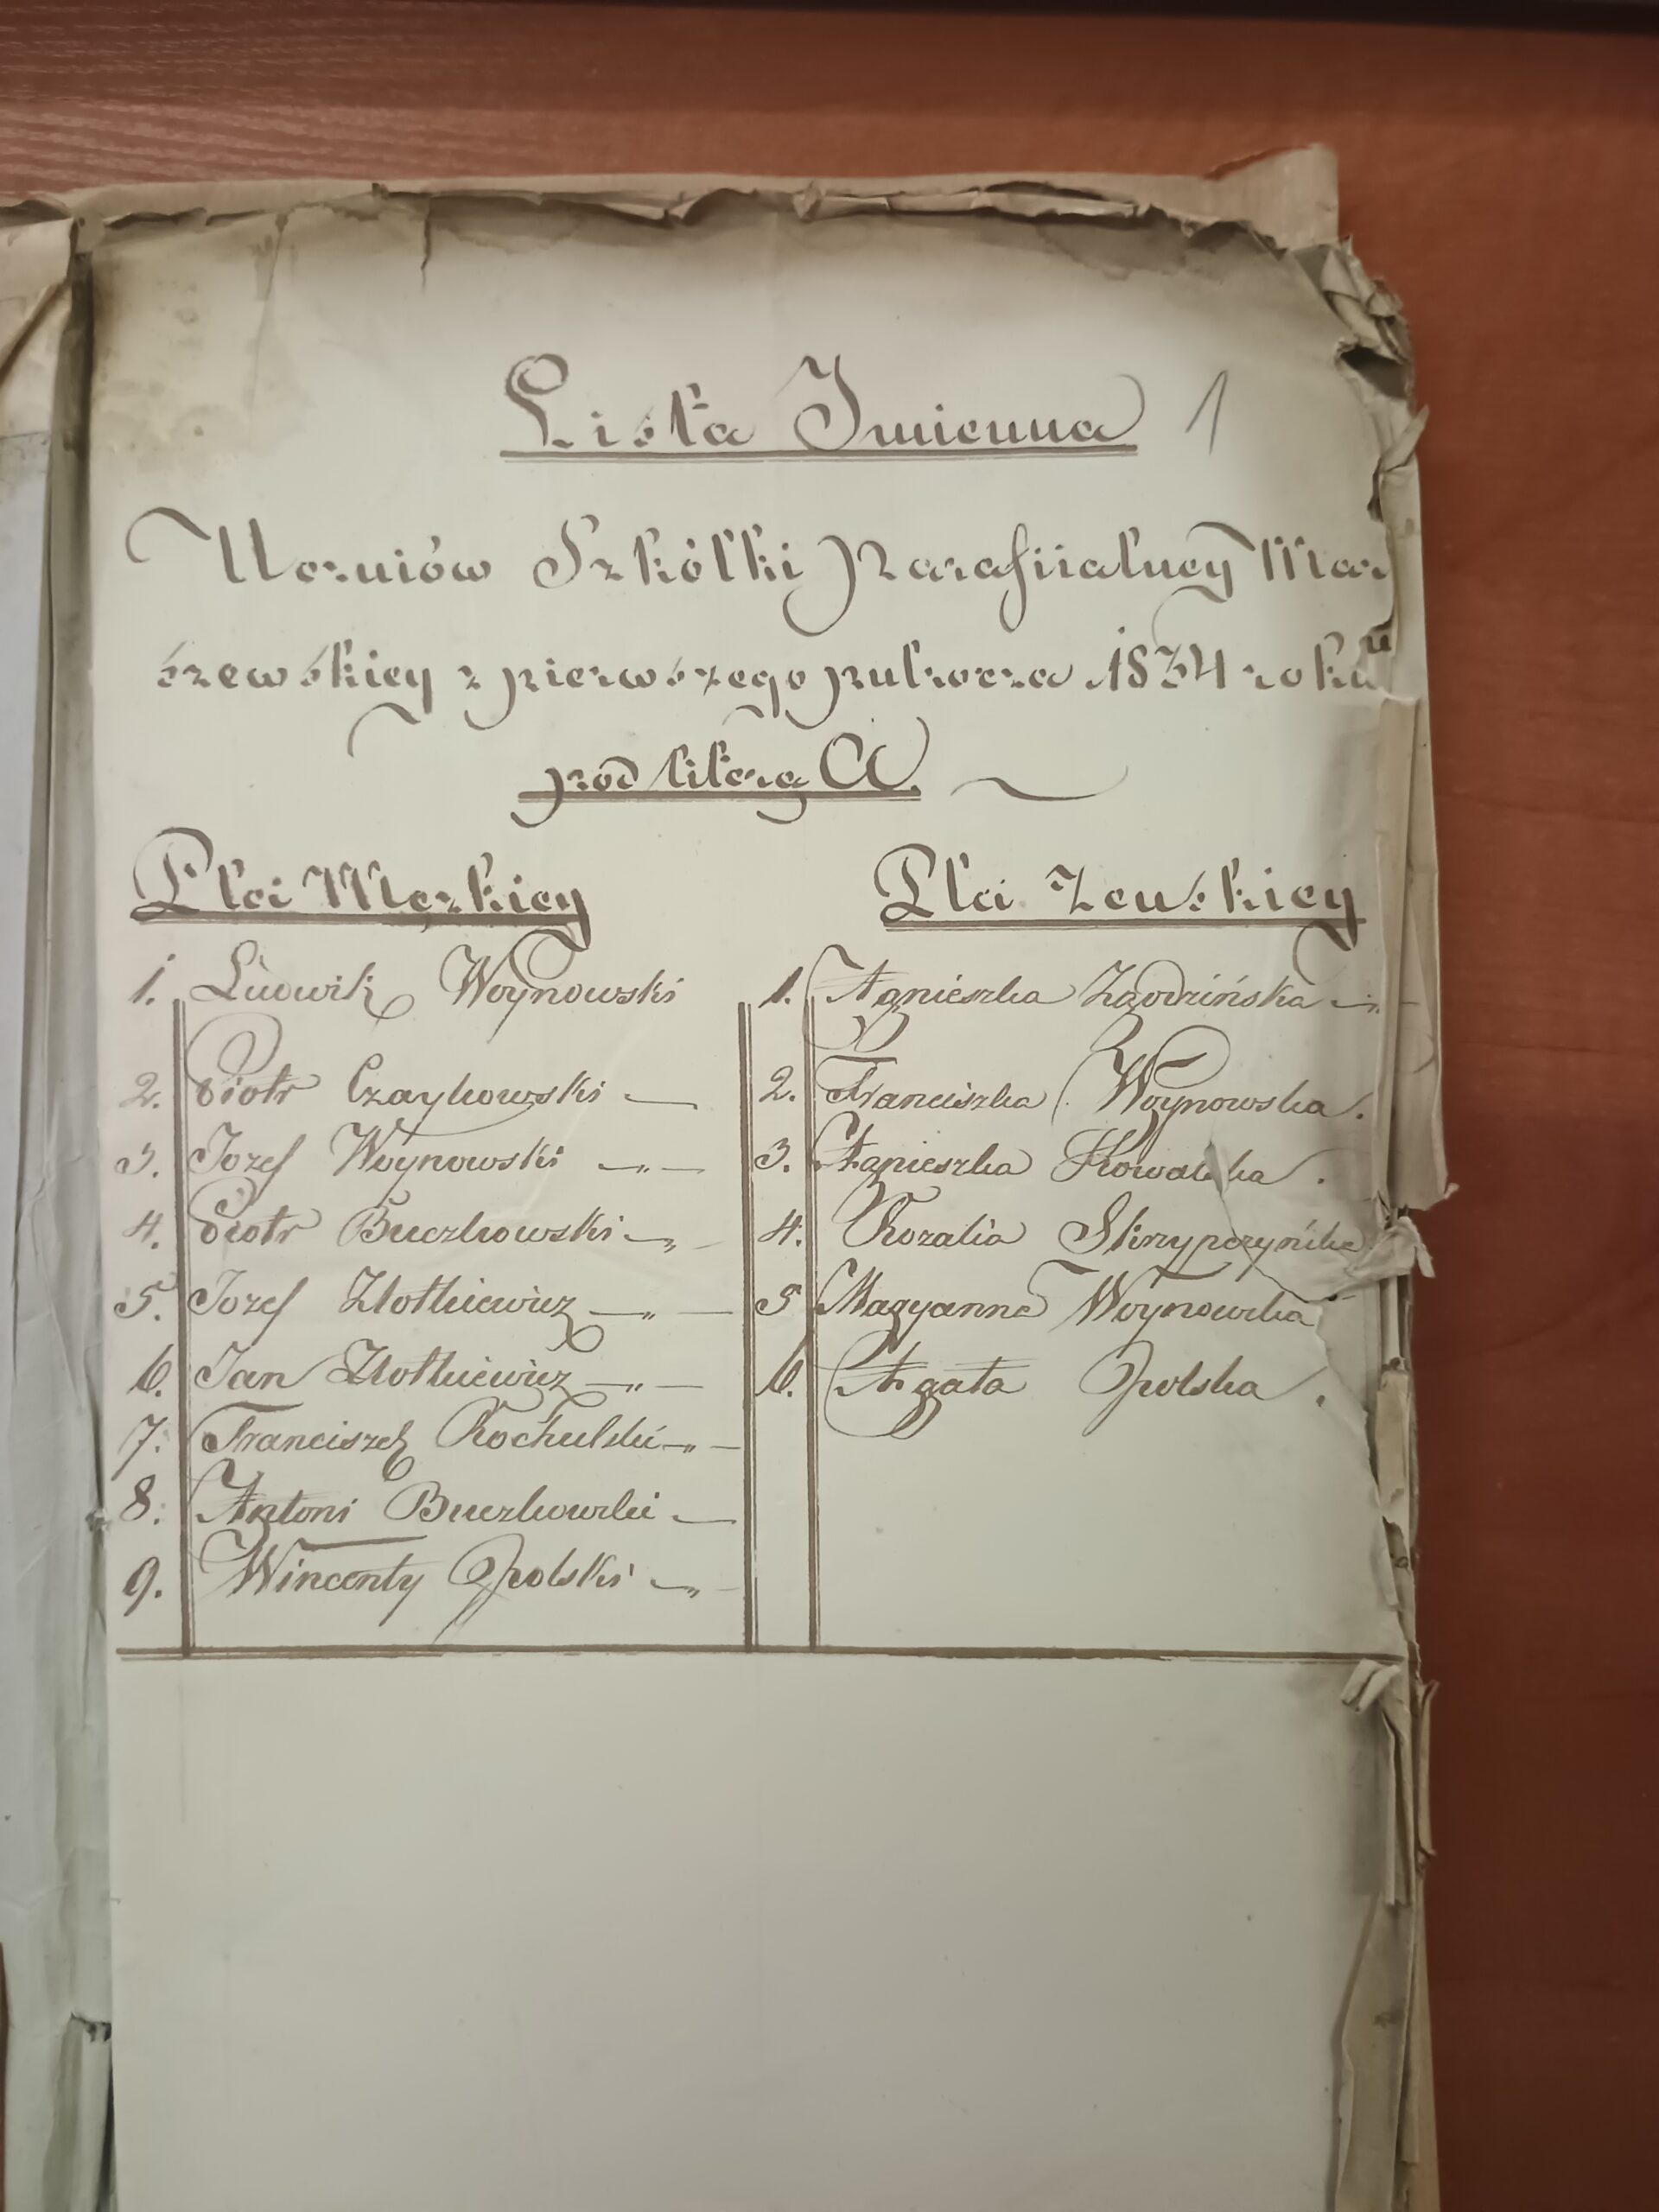 Lista Imienna 1
Uczniów Szkółki Parafiialney Mar
szewskiey z pierwszego pułrocza 1834 roku
pod literą A.
Płci Męzkiey
Płci Zenskiey
1. Ludwik Woynowski
2. Piotr Czaykowski —
3. Jozef Woynowski — „ —
4. Piotr Buczkowski — „ —
5. Jozef Złotkiewicz — „ —
6. Jan Złotkiewicz — „ —
7. Franciszek Rochulski — „ —
8. Antoni Buczkowski —
9. Wincenty Opolski — „ —
1. Agnieszka Zgodzińska — „ —
2. Franciszka Woynowska.
3. Agnieszka Kowalska.
4. Rozalia Skrzypczyńska
5 Maryanna Woynowska
6. Agata Opolska.